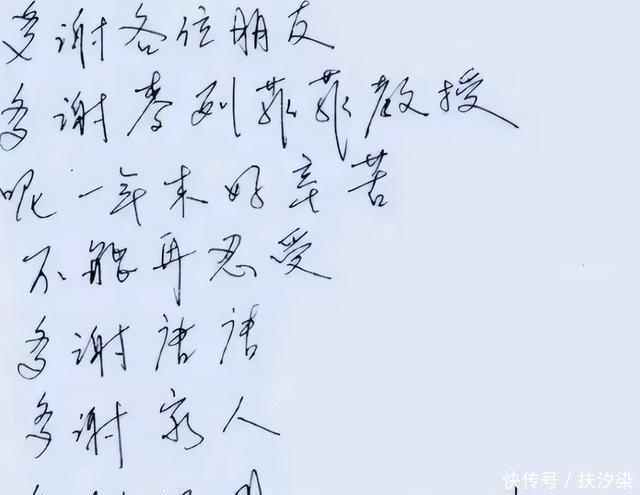 多谢各位朋友
多谢麦列菲菲教授
呢一年来好辛苦
不能再忍受
多谢唐唐
多谢家人
快传号/扶汐染